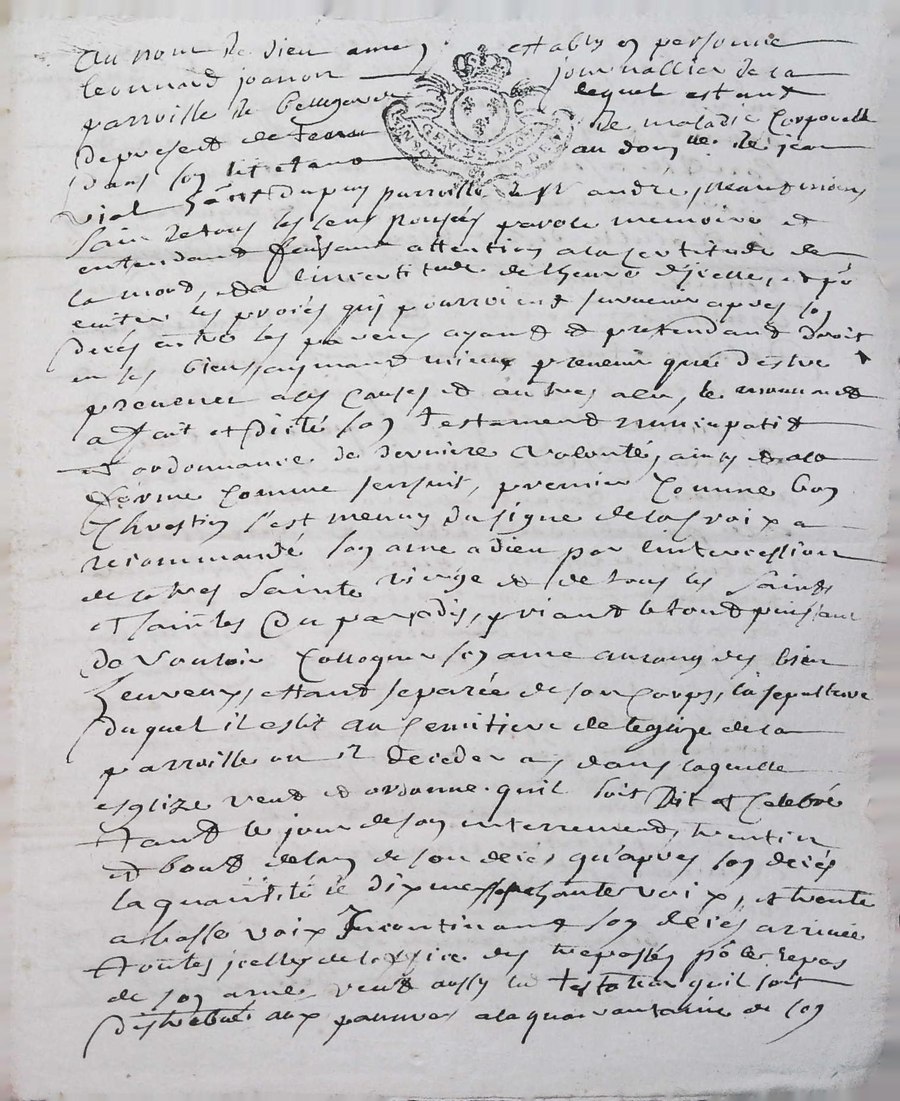 Au nom de dieu amen, estably en personne
leonnard joanon journallier de la
parroisse de bellegarde lequel estant
de present detenu de maladie Corporelle
dans son lit au dom.ne de jean
vial dupuy parroisse de st andré
sain de tous ses sens pensés parole memoire et
entendant faisant attention a la certitude de
la mord, et a l'incertitude de lheure dicelle, et po.r
eviter les procés quy pourroient survenir apres son
decés entre les parens ayant et pretendant droit
en ses biens, aymant mieux prevenir que destre
prevenu a ces causes et autres a luy le mouvant
a fait et dicté son testament nuncupatif
et ordonnance de derniere volonté, ainsy et a la
forme comme sensuit, premier comme bon
Chrestien s'est meuny du signe de la Croix a
recommandé son ame a dieu par l'intercession
de la tres Sainte vierge et de tous les Saints
et saintes du paradis, priant le tout puissant
de vouloir Colloquer son ame au rang des bien
heureux, estant separée de son Corps, la sepulture
duquel il eslit au semitiere de leglize de la
parroisse ou il decedera, dans laquelle
esglize veut et ordonne quil soit dit et Celebré
tant le jour de son enterrement, trentin
et bout de lan de son decés qu'aprés son decés
la quantité de dix messes a haute voix, et trente
a basse voix Incontinant son decés arrivée
toutes jcelles de loffice des trepassés po.r le repos
de son ame veut aussy le testateur quil soit
distribué aux pauvres a la quarantaine de son